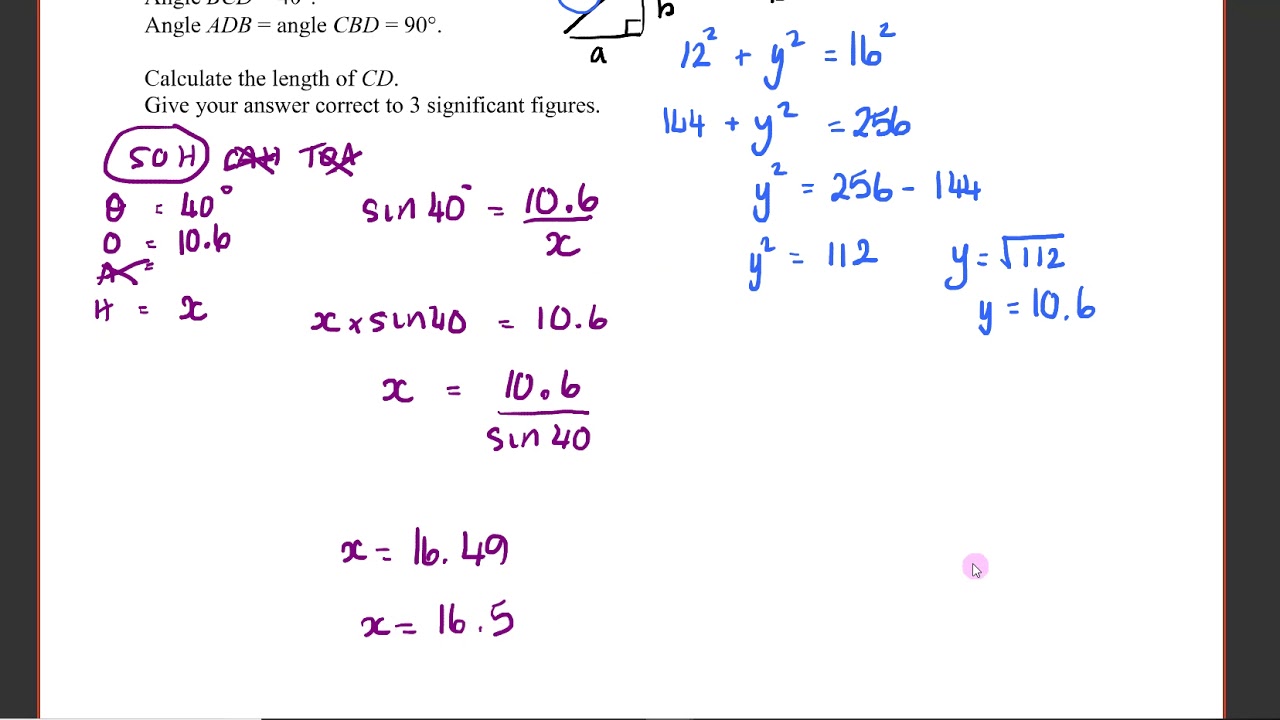 Angle BCD = 40°.
Angle ADB = angle CBD = 90°.
Calculate the length of CD.
Give your answer correct to 3 significant figures.
b
a
12² + y² = 16²
144 + y² = 256
y² = 256 - 144
y² = 112
y = √112
y = 10.6
SOH CAH TOA
θ = 40°
O = 10.6
A =
H = x
sin 40° = 10.6/x
x × sin 40 = 10.6
x = 10.6/sin 40
x = 16.49
x = 16.5